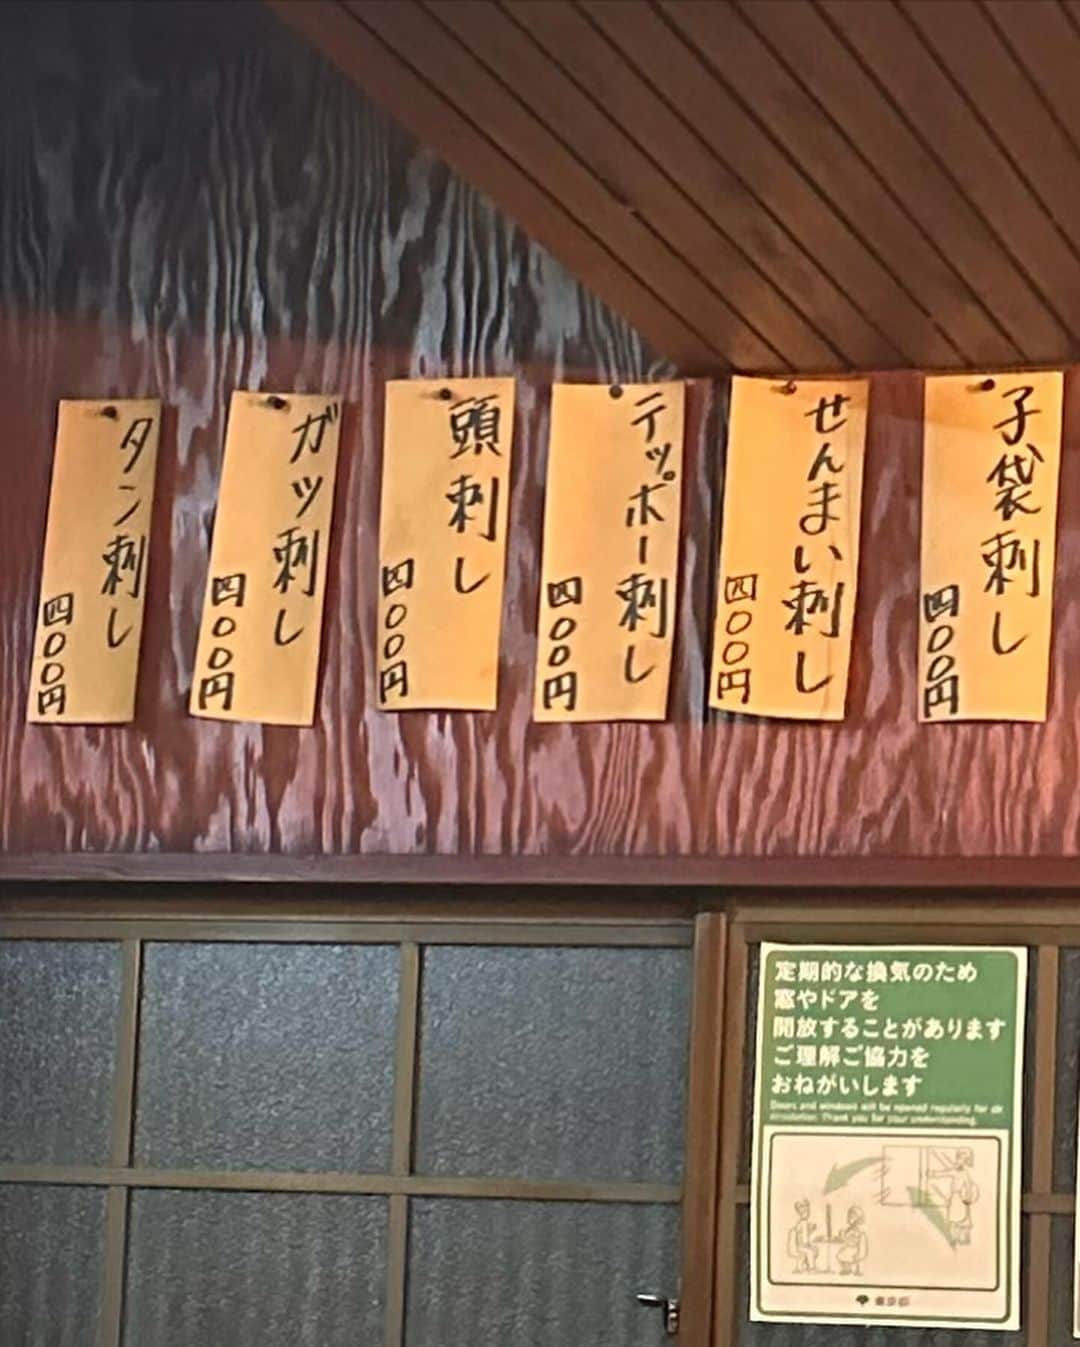 子袋刺し
四〇〇円
せんまい刺し
四〇〇円
テッポー刺し
四〇〇円
頭刺し
四〇〇円
ガツ刺し
四〇〇円
タン刺し
四〇〇円
定期的な換気のため
窓やドアを
開放することがあります
ご理解ご協力を
おねがいします
Doors and windows will be opened regularly for air
circulation. Thank you for your understanding.
東京都